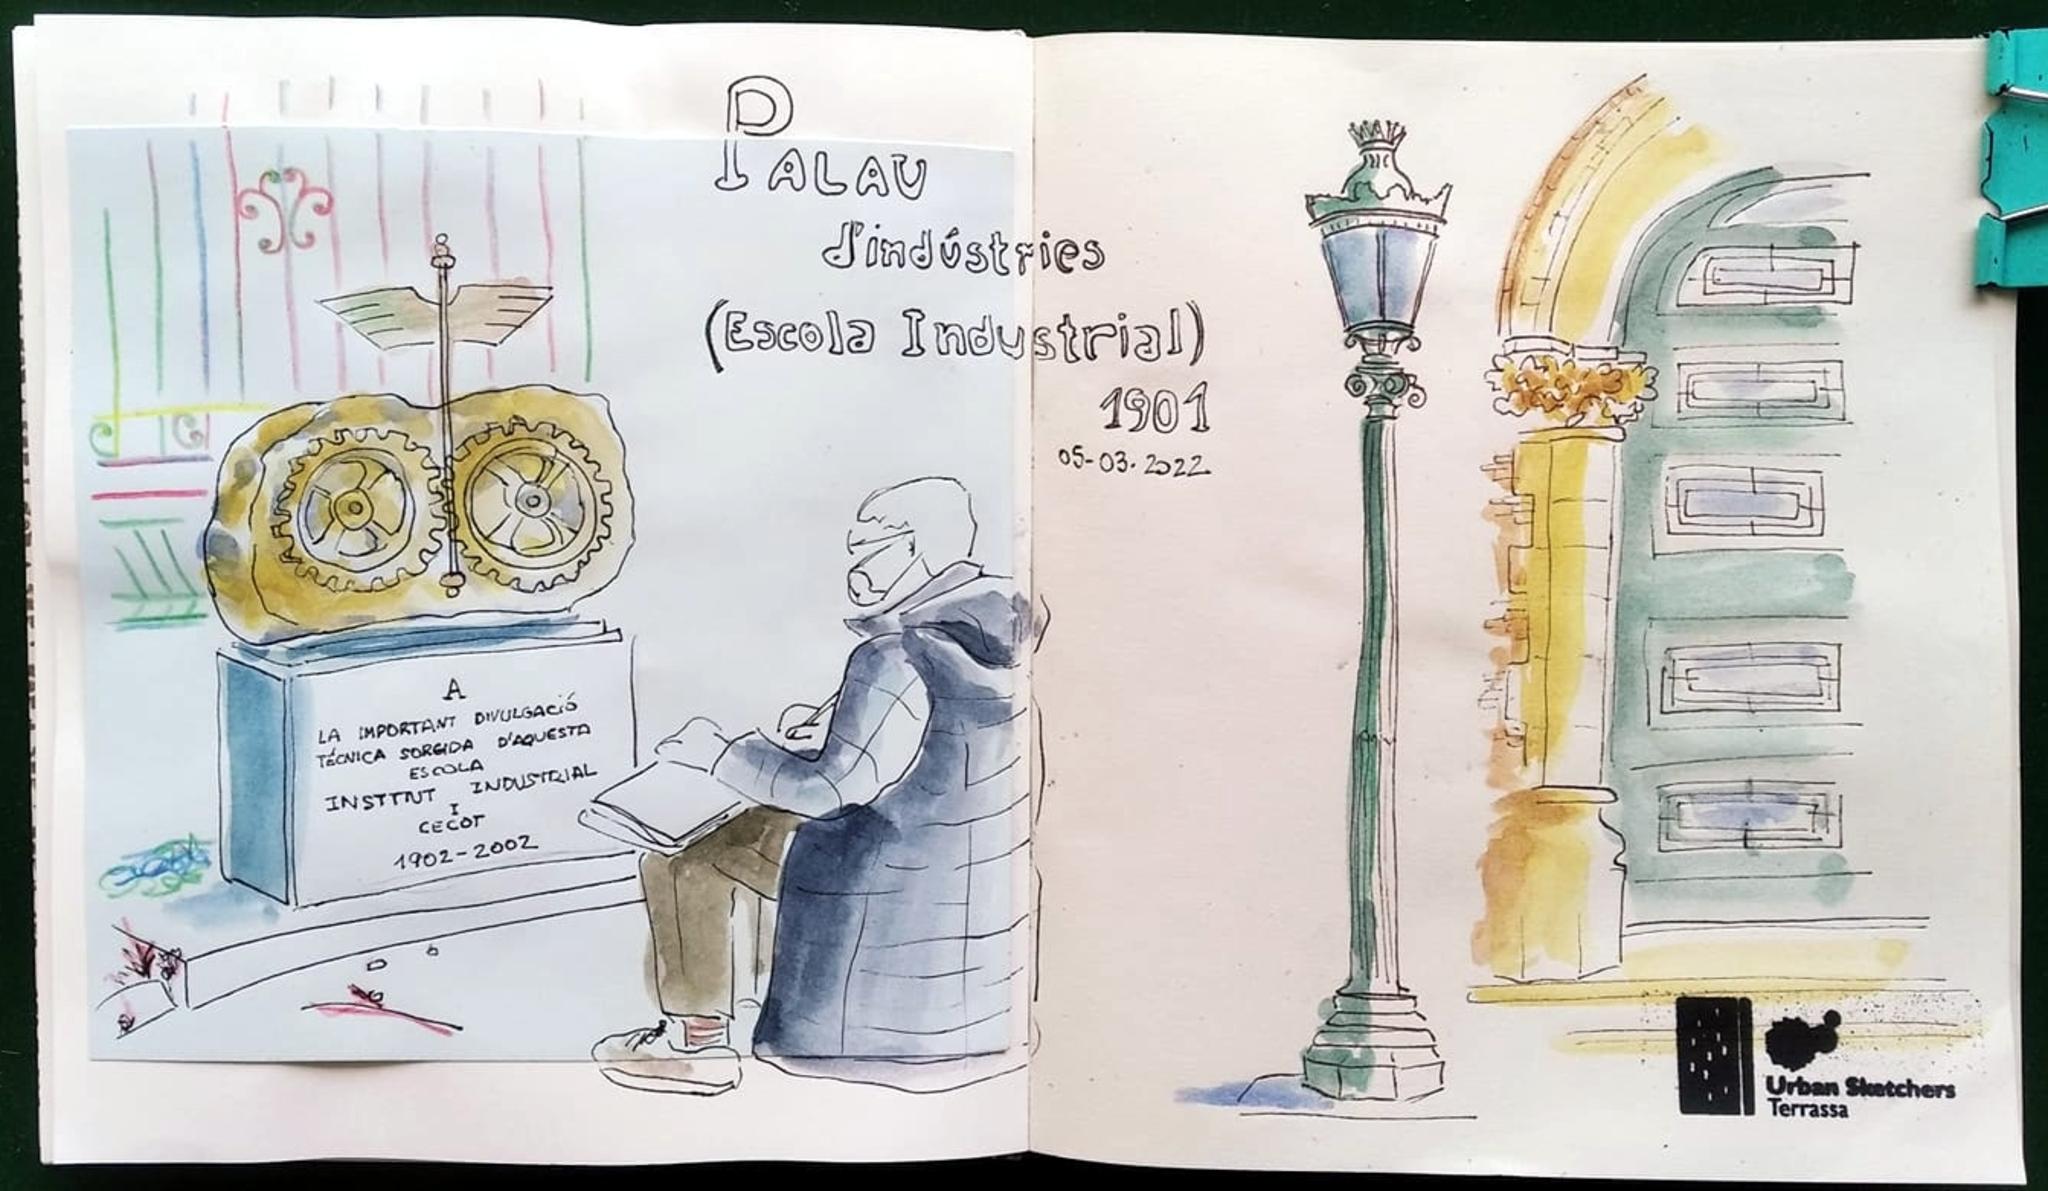 PALAU
d'indústries
(Escola Industrial)
1901
05-03-2022
A
LA IMPORTANT DIVULGACIÓ
TÉCNICA SORGIDA D'AQUESTA
ESCOLA
INSTITUT INDUSTRIAL
I
CECOT
1902-2002
Urban Sketchers
Terrassa